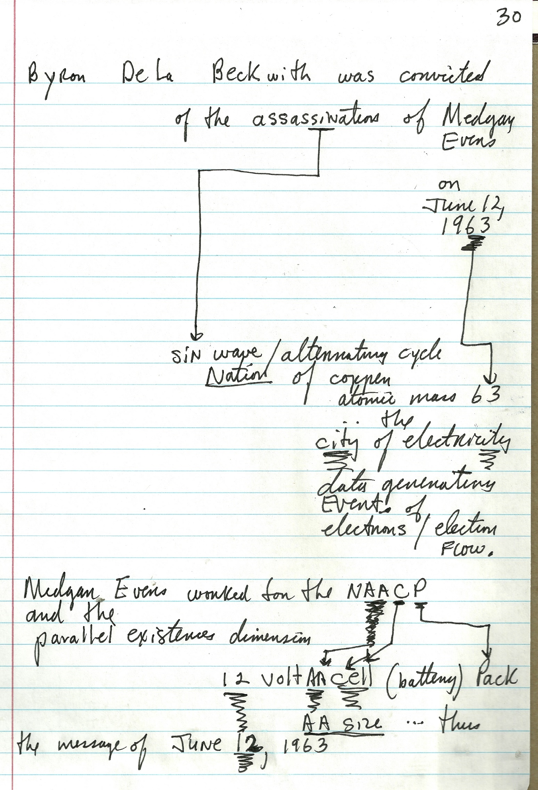 30
Byron De La Beckwith was convicted
of the assassination of Medgar
Evers
on
June 12,
1963
sin wave / alternating cycle
Nation of copper
atomic mass 63
... the
city of electricity
data generating
Events of
electrons / election
Flow.
Medgar Evers worked for the NAACP
and the
parallel existences dimension
12 volt AA cell (battery) Pack
AA size ... thus
the message of June 12, 1963